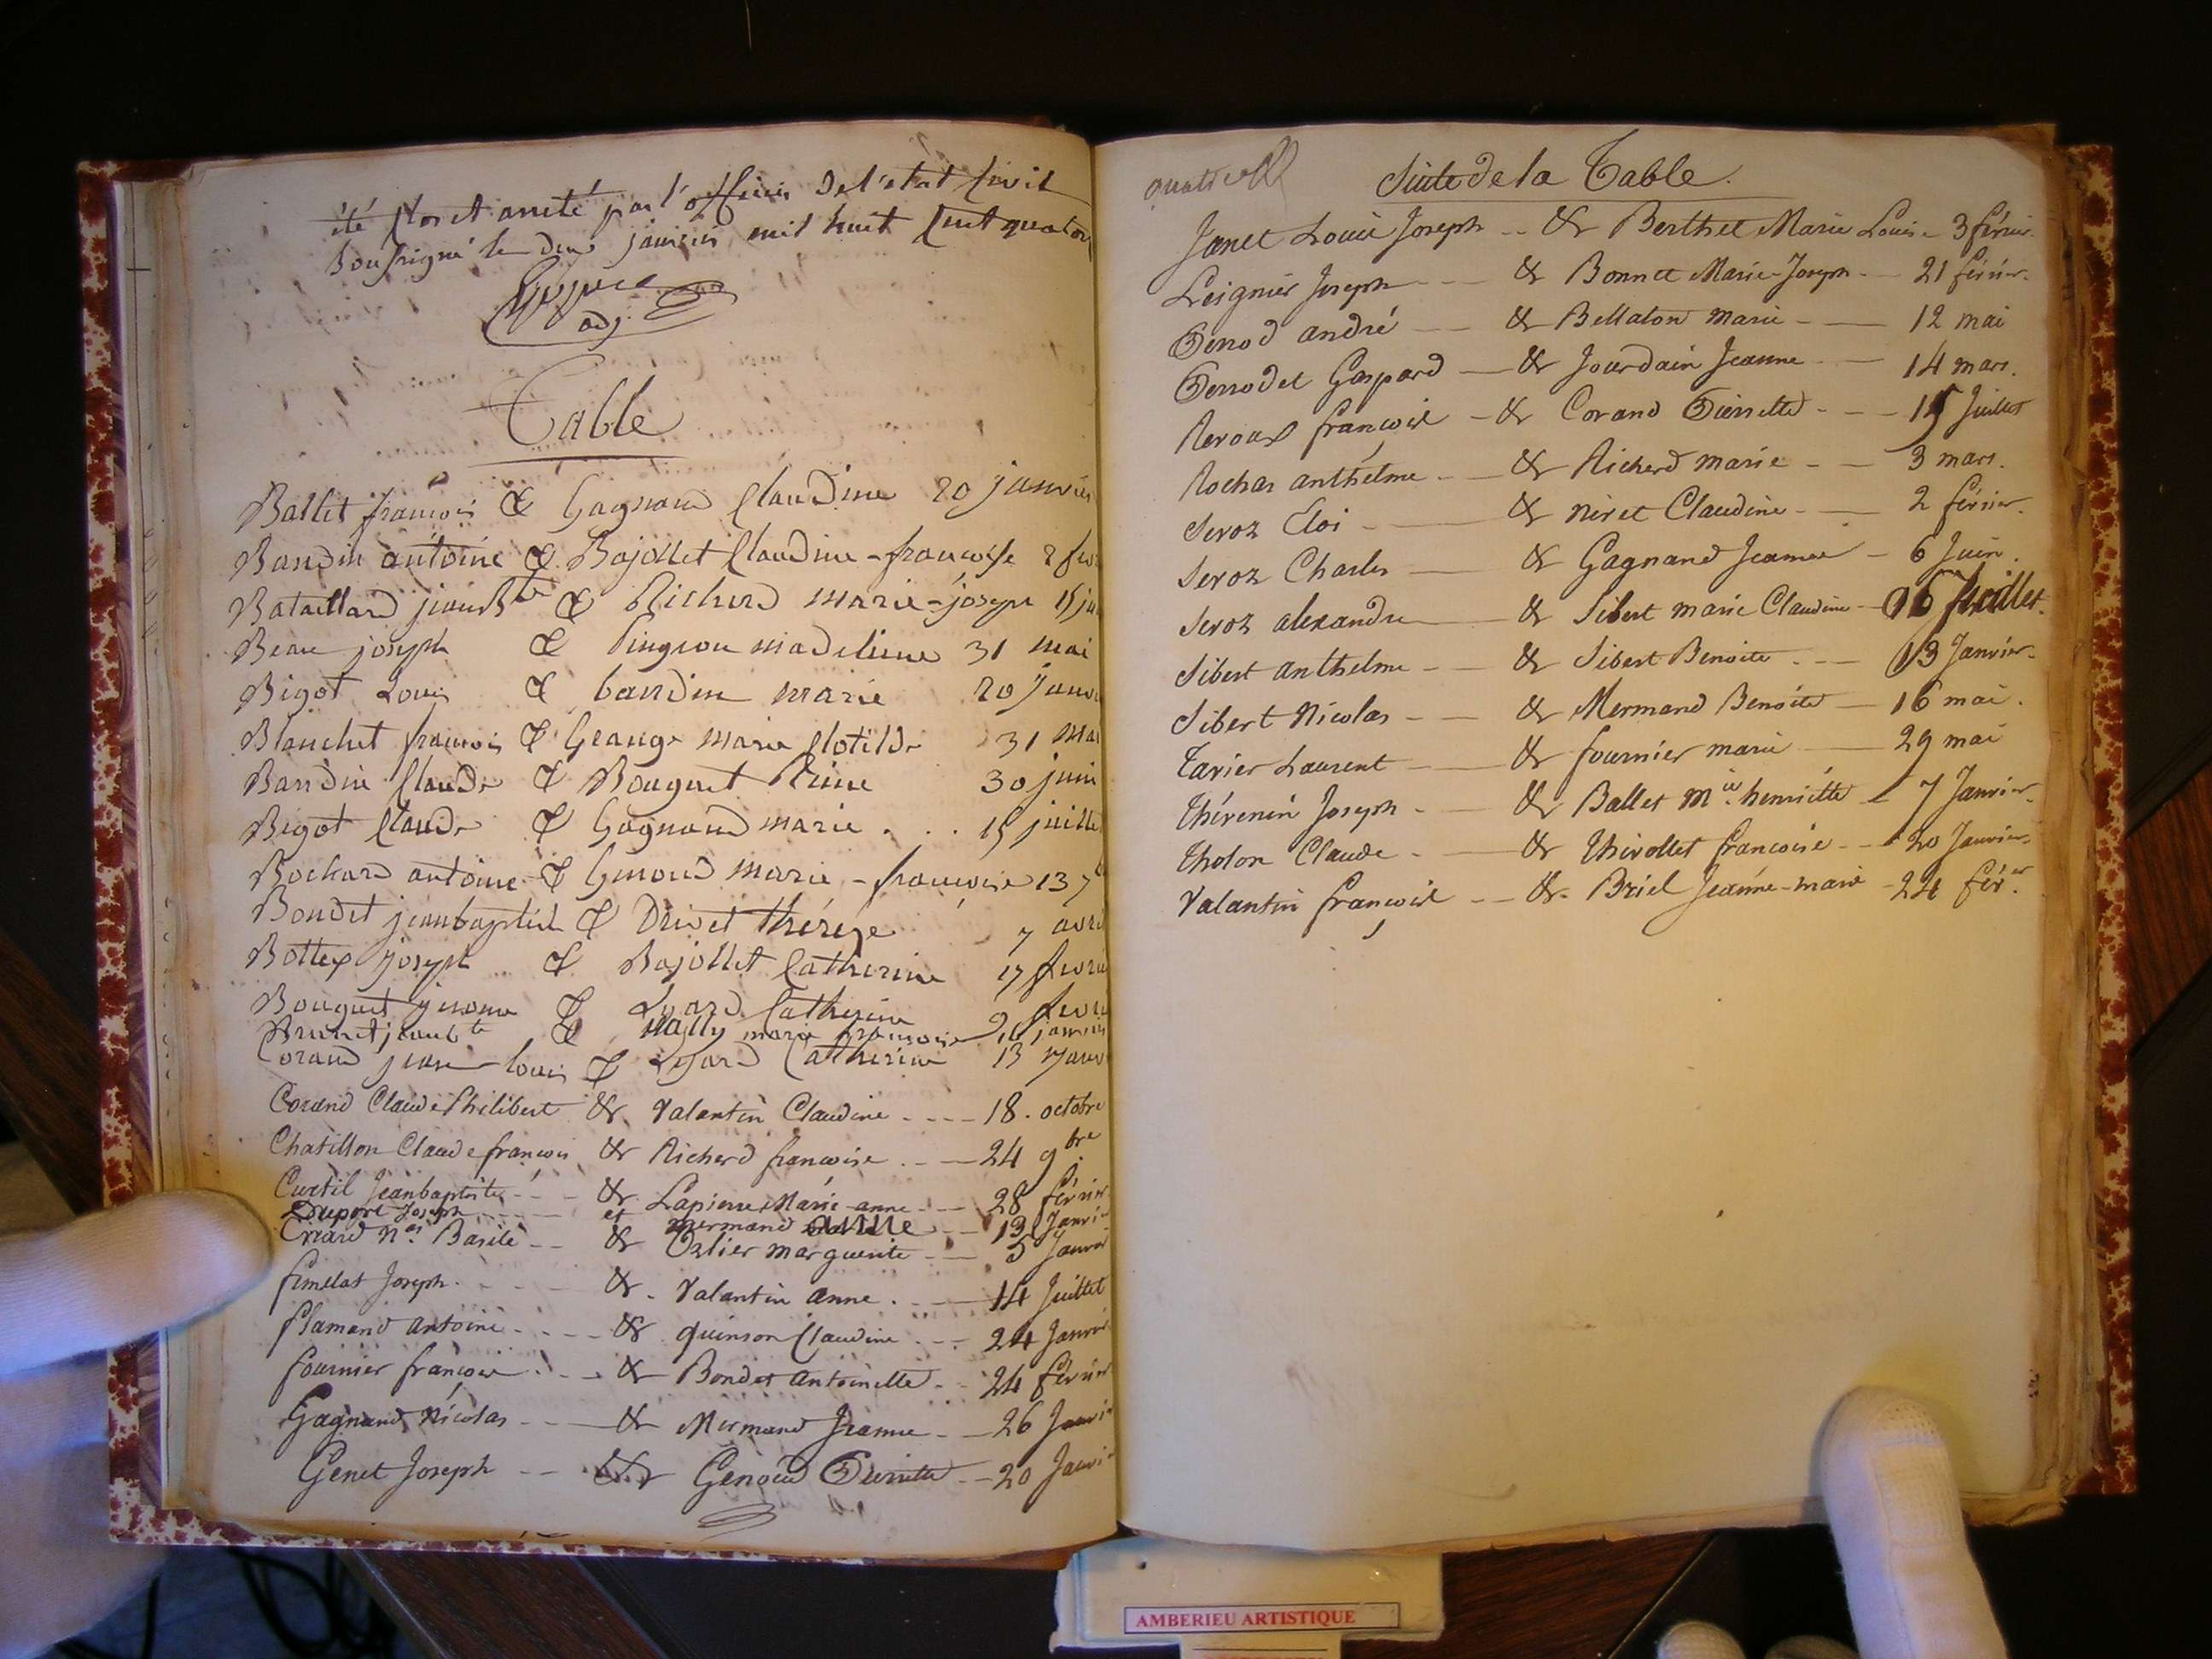 été clos et arreté par l'officier de l'etat civil
Soussigné le deux janvier mil huit cent quator
adj.
Table
Ballet françois & Gagnand Claudine 20 janvier
Baudin antoine & Bajollet Claudine-francoise 2 fev
Bataillard jean Bte & Richerd marie-josepe 15 ju
Beau joseph & Pingeon madeleine 31 mai
Bigot Louis & baudin marie 20 janv
Blanchet francois & Grange marie Clotilde 31 mai
Baudin Claude & Bouguet Reine 30 juin
Bigot Claude & Gagnand marie . . . 15 juille
Bochard antoine & Genoud marie-francoise 13 7b
Bondet jeanbaptiste & Drivet thérèze 7 avri
Bottex joseph & Bajollet Catherine 17 fevrie
Bouguet jerome & Lyard Catherine 9 fevri
Brunet jean bte & Mally marie francoise 26 janvier
Corand jean-louis & Lyard Catherine 13 janv
Corand Claude Philibert & Valantin Claudine - - - - 18. octobre
Chatillon Claude francois & Richerd francoise . - - 24 9bre.
Curtil Jeanbaptiste - - - & Lapierre Marie-anne - - - 28 février
Duport Joseph - - - - et mermand anne - - 13 Janvier
Criard Nas. Basile - - & Orlier marguerite - - 5 Janvier
fimelat Joseph. - - - - & . Valantin anne . - - 14 Juillet
flamand antoine - - - - & quinson Claudine - - - 24 Janvier
fournier francois . - - & Bondet antoinette - - 24 février
Gagnand Nicolas - - - & Mermand Jeanne - - 26 Janvier
Genet Joseph - - & Genoud Pierrette - - 20 Janvier
Suite de la Table.
Janet Louis Joseph - - & Berthet Marie Louise 3 février.
Leignier Joseph - - - & Bonnet Marie-Joseph - - 21 février.
Perrod andré - - & Bellaton marie - - 12 mai
Perrodet Gaspard - & Jourdain Jeanne - - 14 mars.
Reroux françois - & Corand Pierrette - - - 15 Juillet
Rochas anthelme - - & Richerd marie - - 3 mars.
Seroz Eloi - - & niret Claudine - - 2 février.
Seroz Charles - & Gagnand Jeanne - 6 Juin.
Seroz alexandre - & Sibert marie Claudine - 16 Juillet.
Sibert anthelme - - & Sibert Benoite . - - 13 Janvier.
Sibert Nicolas - - & Mermand Benoite - 16 mai.
Tavier Laurent - & fournier marie - 29 mai
Thévenin Joseph - - & Ballet Mie. henriette - 7 Janvier.
Tholon Claude - - & Thivollet francoise - - 20 Janvier.
Valantin françois - - & - Briel Jeanne-marie - 24 fév.er
AMBERIEU ARTISTIQUE